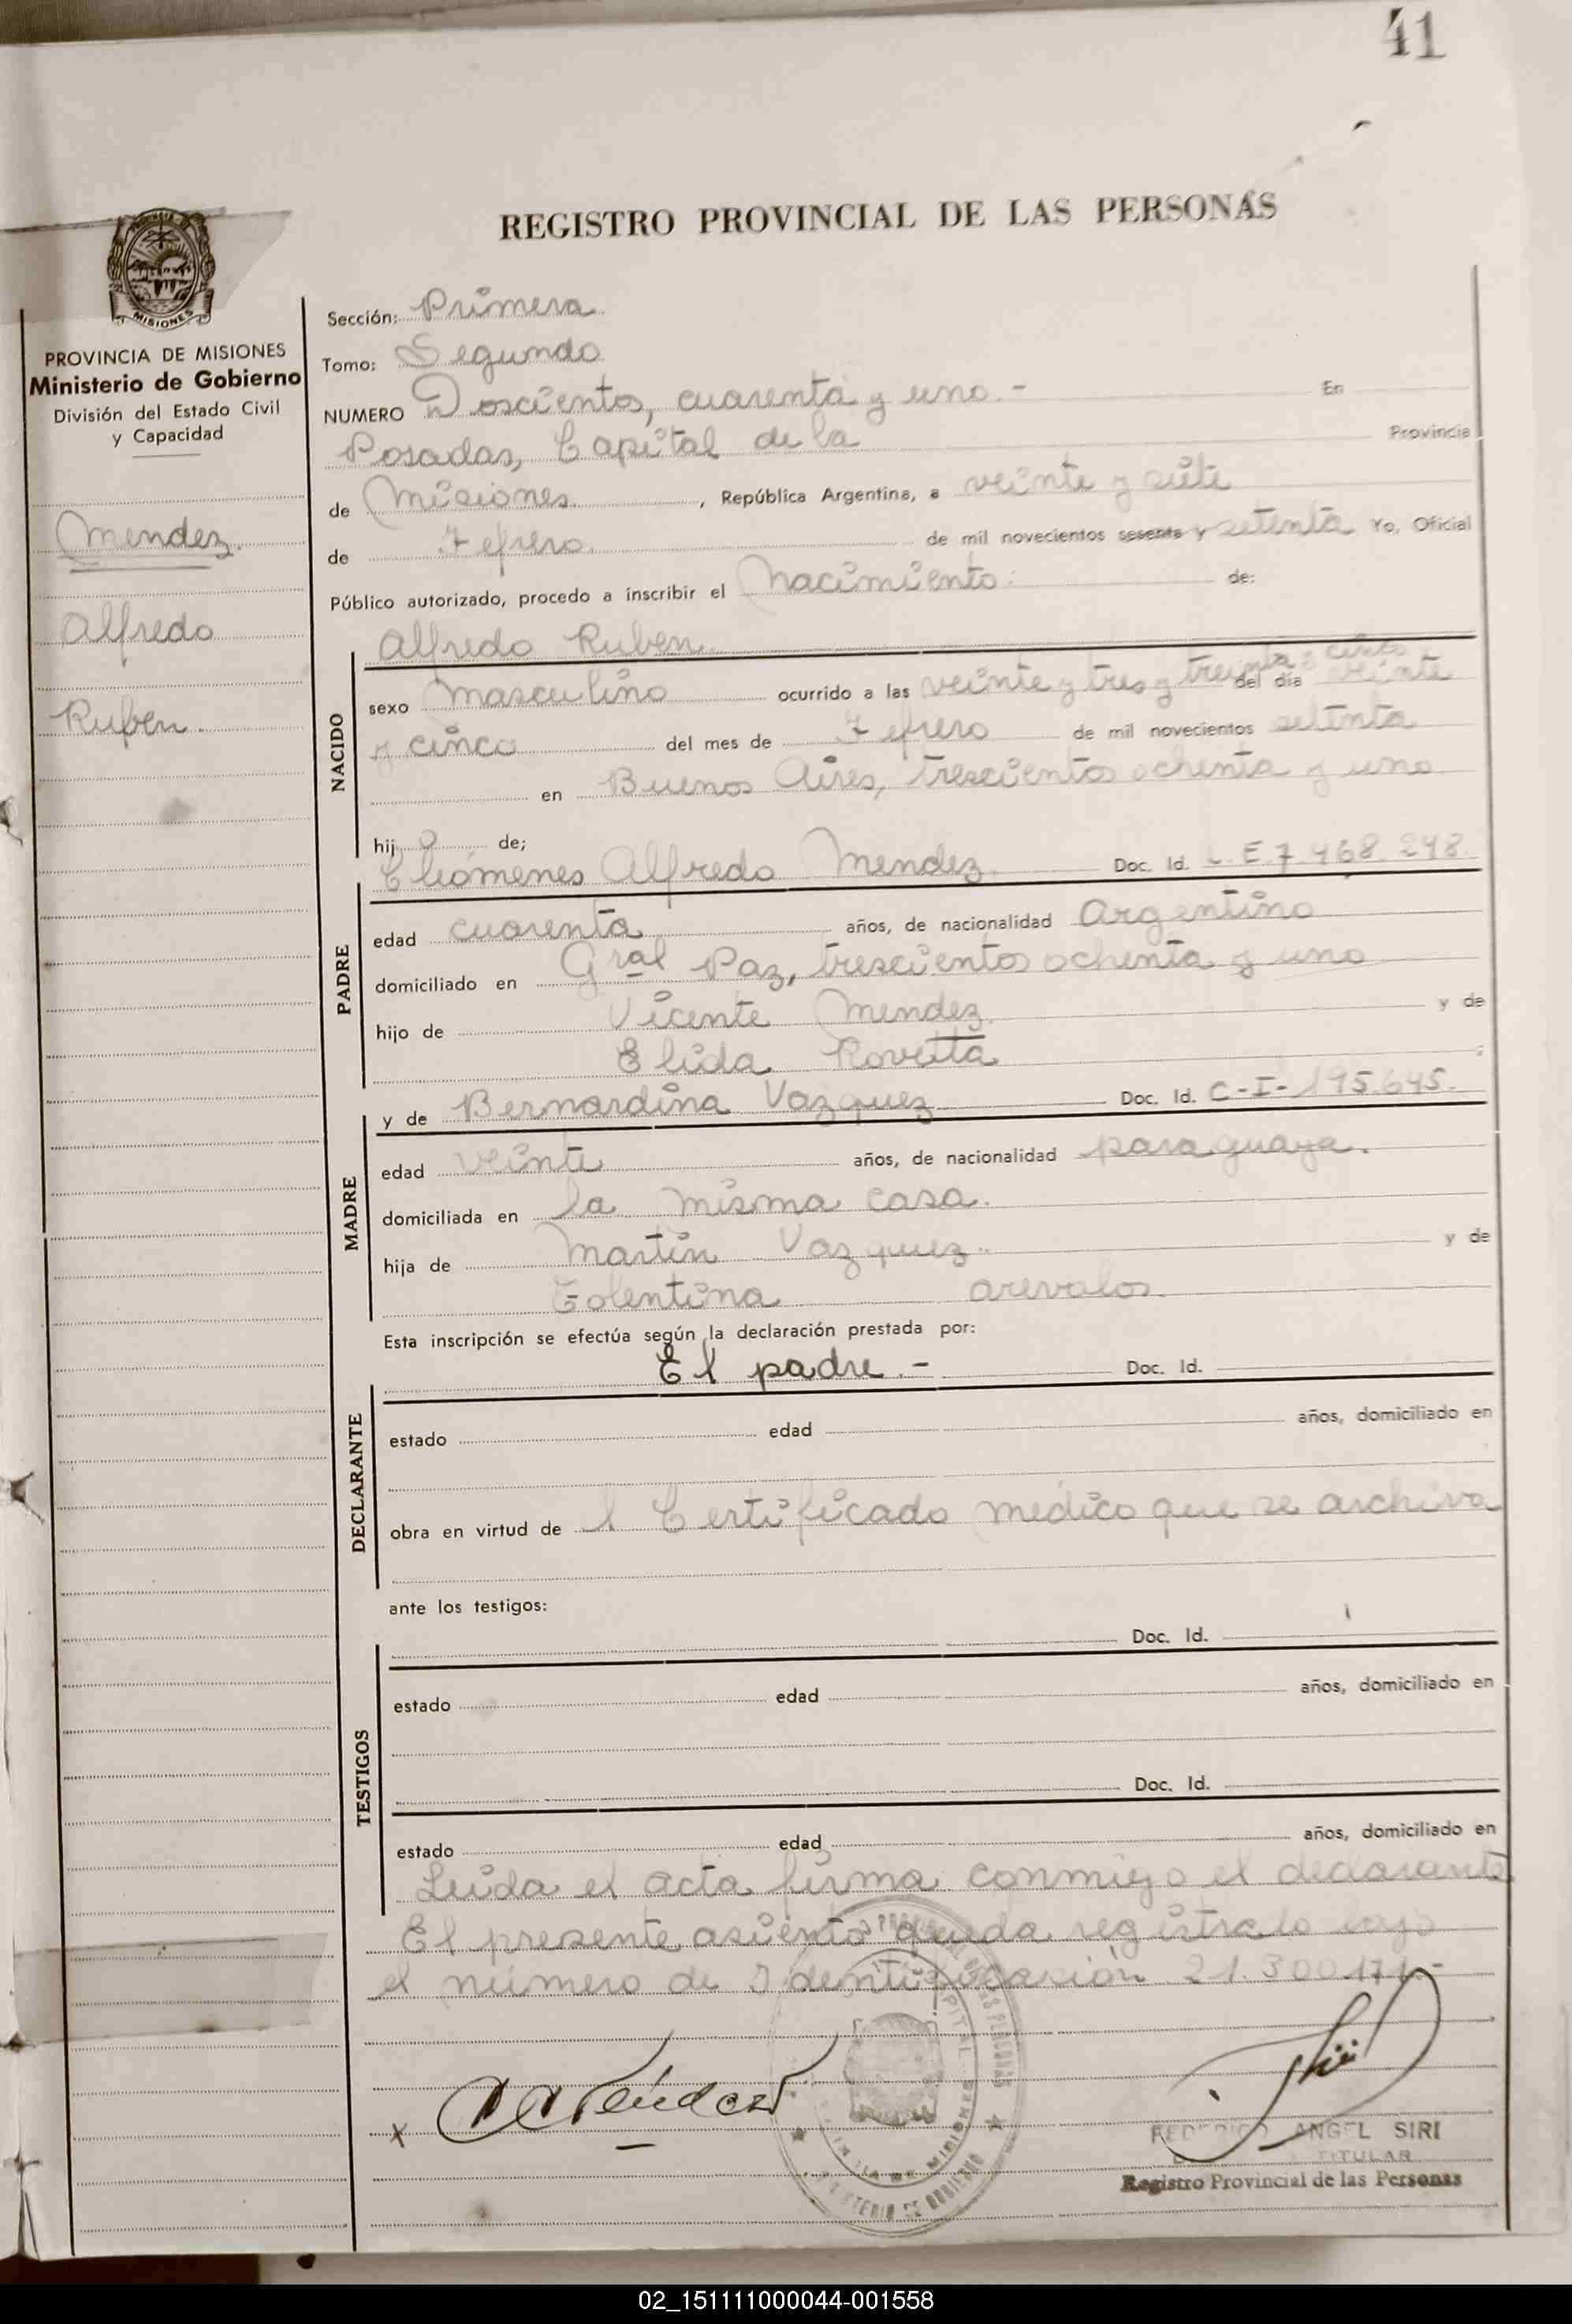 41
REGISTRO PROVINCIAL DE LAS PERSONAS
MISIONES
PROVINCIA DE MISIONES
Ministerio de Gobierno
División del Estado Civil
y Capacidad
Mendez.
Alfredo
Ruben.
Sección: Primera
Tomo: Segundo
NUMERO Doscientos, cuarenta y uno.- En
Posadas, Capital de la Provincia
de Misiones, República Argentina, a veinte y siete
de Febrero de mil novecientos sesenta y setenta Yo, Oficial
Público autorizado, procedo a inscribir el Nacimiento: de:
Alfredo Ruben.
NACIDO
sexo masculino ocurrido a las veinte y tres y treinta y cinco del día veinte
y cinco del mes de Febrero de mil novecientos setenta
en Buenos Aires, trescientos ochenta y uno
hijo de;
Alfredo Mendez Doc. Id. L.E.7.468.248.
PADRE
edad cuarenta años, de nacionalidad Argentino
domiciliado en Gral Paz, trescientos ochenta y uno
hijo de Vicente Mendez. y de
Elida
y de Bernardina Vazquez Doc. Id. C-I-195.645.
MADRE
edad veinte años, de nacionalidad paraguaya.
domiciliada en la misma casa.
hija de Martin Vazquez.. y de
Tolentina arevalos.
Esta inscripción se efectúa según la declaración prestada por:
El padre.- Doc. Id.
DECLARANTE
estado edad años, domiciliado en
obra en virtud de l Certificado medico que se archiva
ante los testigos:
Doc. Id.
TESTIGOS
estado edad años, domiciliado en
Doc. Id.
estado edad años, domiciliado en
Leida el acta firma conmigo el declarante
El presente asiento queda registrado bajo
el número de Identificación 21.300.171.-
x
FEDERICO ANGEL SIRI
TITULAR
Registro Provincial de las Personas
02_151111000044-001558